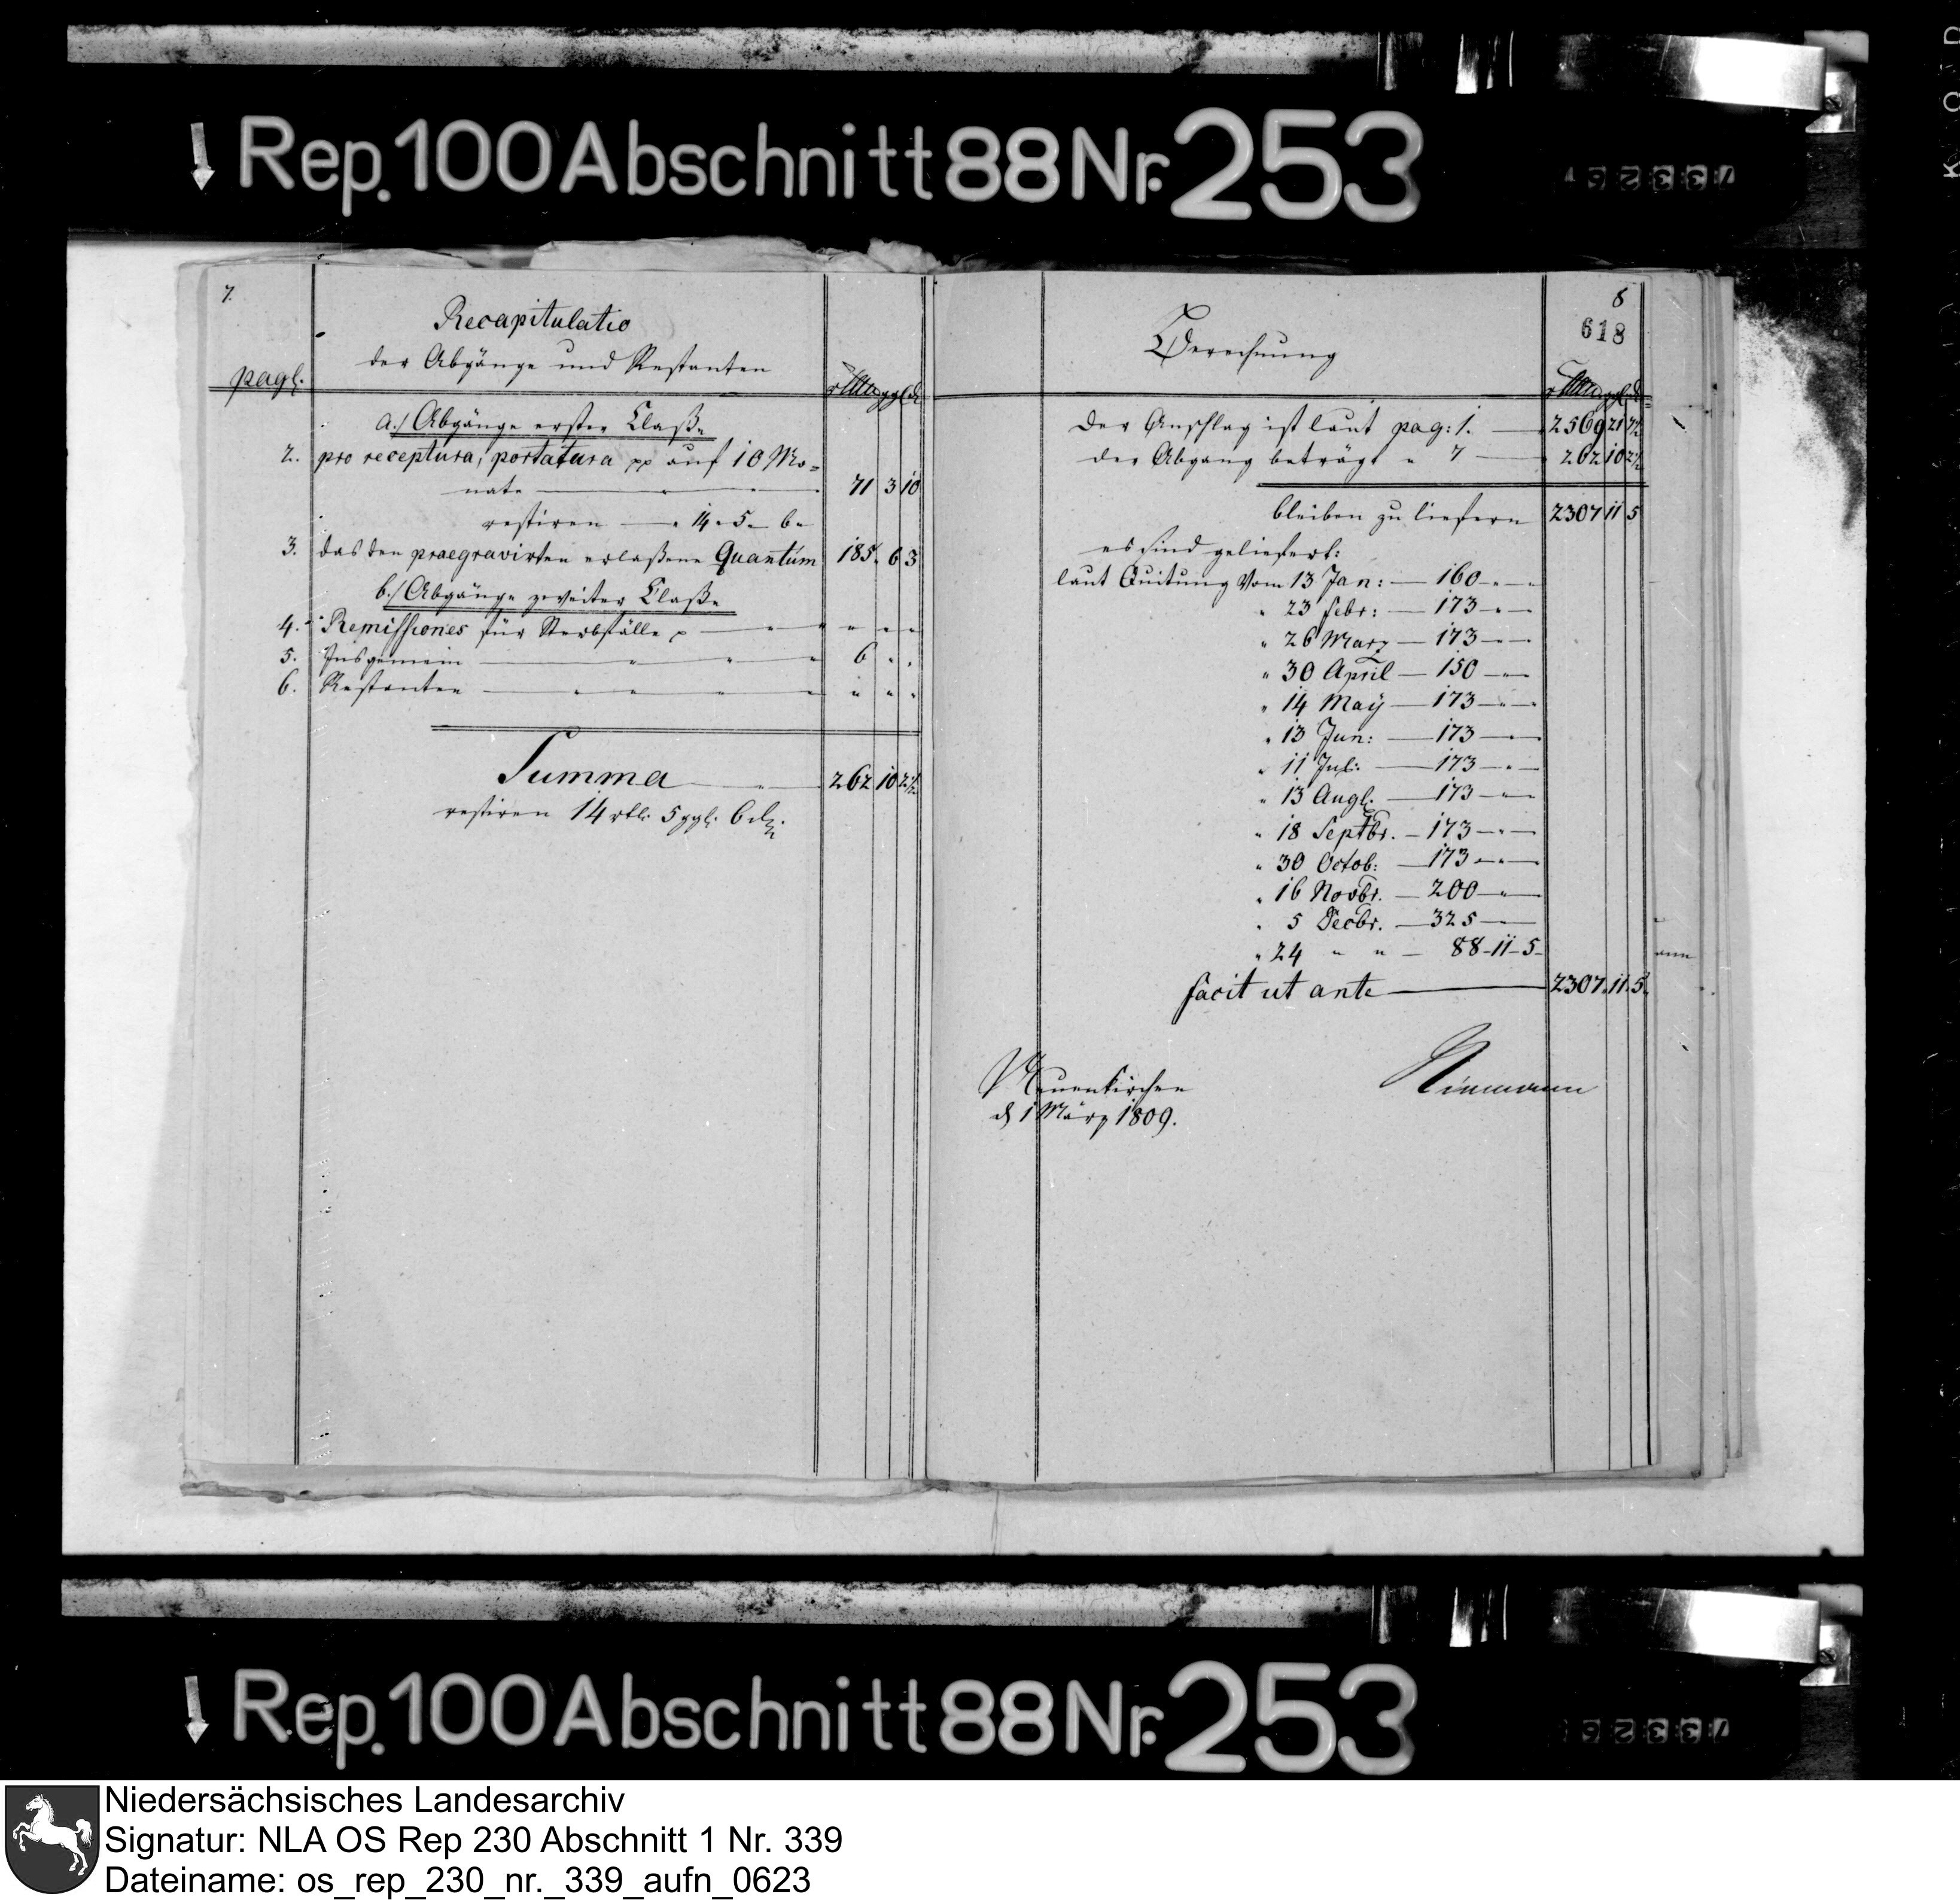 ↓ Rep. 100 Abschnitt 88 Nr. 253
7.
Recapitulatio
der Abgänge und Restanten
pag:
a./ Abgänge erster Claße
2. pro receptura, portatura pp auf 10 Mo=
nate — 71 3 10
restiren — " 14 " 5 " 6 "
3. das den praegravirten erlaßene Quantum 185. 6 3
b./ Abgänge zweiter Claße
4. Remissiones für Sterbfälle p — " " " "
5. Insgemein — " " " 6 " "
6. Restanten — " " " " " " "
Summa — " — 262 10 2½
restiren 14 rtlr. 5 ggl. 6 d.
8
618
Berechnung
Der Anschlag ist laut pag: 1. — 2569 21 7½
der Abgang beträgt " 7 — 262 10 2½
bleiben zu liefern 2307 11 5
es sind geliefert:
laut Quitung Vom 13 Jan: — 160 — " —
" 23 Febr: — 173 — " —
" 26 Marz — 173 — " —
" 30 April — 150 — " —
" 14 Maÿ — 173 — " —
" 13 Jun: — 173 — " —
" 11 Jul: — 173 — " —
" 13 Aug: — 173 — " —
" 18 Septbr. — 173 — " —
" 30 Octob: — 173 — " —
" 16 Novbr. — 200 — " —
" 5 Decbr. — 325 —
" 24 " " — 88 - 11 - 5 -
facit ut ante — 2307. 11. 5.
Neuenkirchen
d 1 März 1809.
Niemann
↓ Rep. 100 Abschnitt 88 Nr. 253
Niedersächsisches Landesarchiv
Signatur: NLA OS Rep 230 Abschnitt 1 Nr. 339
Dateiname: os_rep_230_nr._339_aufn_0623